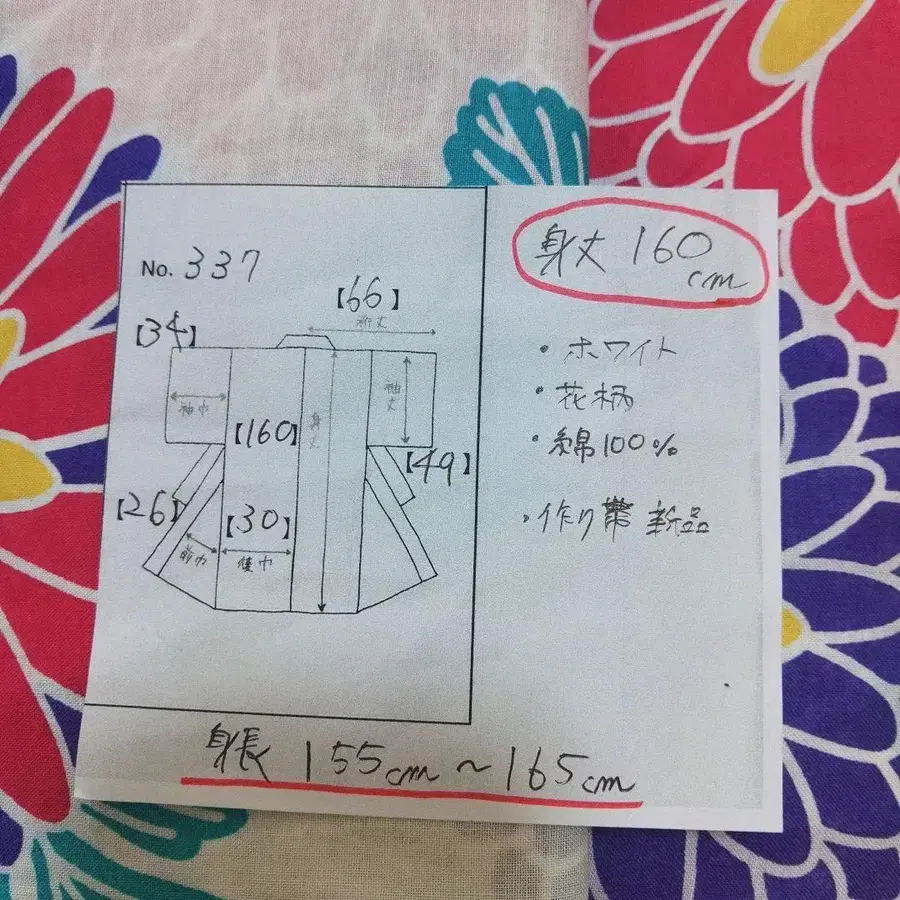 No. 337
【66】
裄丈
【34】
袖巾
袖丈
【160】
身丈
【49】
【26】
【30】
前巾
後巾
身丈 160
cm
・ホワイト
・花柄
・綿100%
・作り帯 新品
身長 155cm~165cm